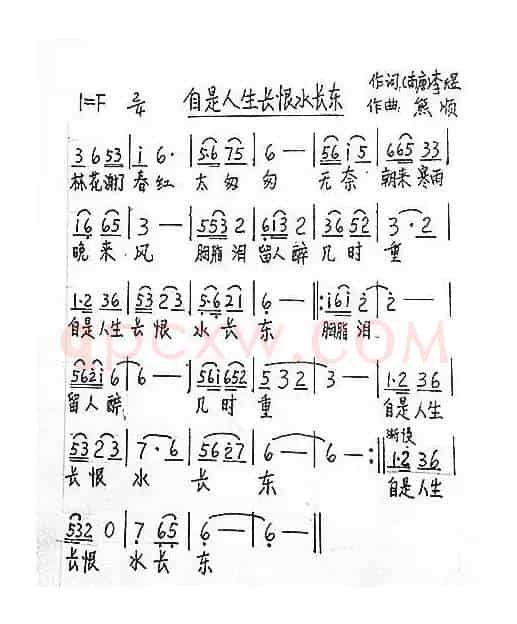 自是人生长恨水长东
作词:(南唐)李煜
1=F 2/4
作曲:熊顺
3 6 53 | i 6· | 5·6 75 | 6 — | 56 i 5 | 665 33 |
林花谢了 春红 太匆匆 无奈 朝来寒雨
i6 65 | 3 — | 553 2 | 6i3 2 | 36 52 | 3·2 |
晚来风 胭脂泪 留人醉 几时重
1·2 36 | 53 23 | 5·6 21 | 6 — ‖: i6i 2 | 2 — |
自是人生长恨水长东 胭脂泪
562i 6 | 6 — | 56i 652 | 5 3 2 | 3 — | 1·2 36 |
留人醉 几时重 自是人生
渐慢
53 23 | 7·6 | 56 27 | 6 — | 6 — :‖ 1·2 36 |
长恨水长东 自是人生
532 0 | 7 65 | 6 — | 6 — ‖
长恨水长东
qpcxw.COM